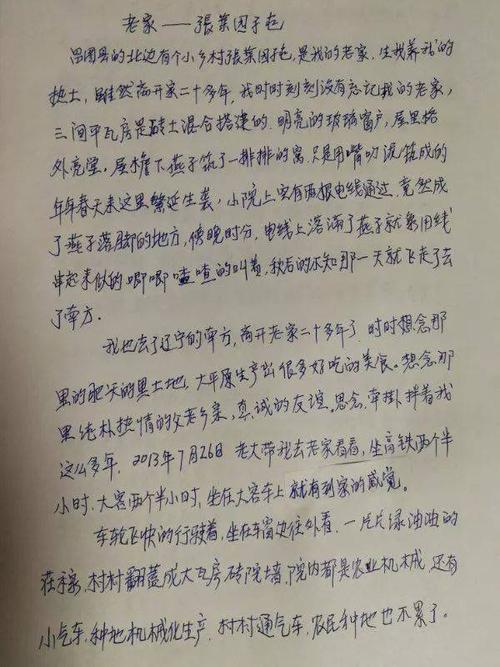 老家——張葉因子屯
昌图县的北边有个小乡村張葉因子屯,是我的老家.生我养我的
热土,虽然离开家二十多年,我时时刻刻没有忘记我的老家,
三间平瓦房是砖土混合搭建的.明亮的玻璃窗户,屋里格
外亮堂。屋檐下燕子筑了一排排的窝.只是用嘴叨泥筑成的
年年春天来这里繁延生长,小院上空有两根电线通过.竟然成
了燕子落脚的地方,傍晚时分,电线上落满了燕子就象用线
串起来似的唧唧喳喳的叫着,秋后的不知那一天就飞走了去
了南方.
我也去了辽宁的南方,离开老家二十多年了.时时想念那
里的肥沃的黑土地,大平原生产出很多好吃的美食。想念那
里纯朴热情的父老乡亲,真诚的友谊。思念,牵掛拌着我
这么多年.2013年7月26日老大带我去老家看看,坐高铁两个半
小时.大客两个半小时,坐在大客车上就有到家的感觉。
车轮飞快的行驶着,坐在车窗边往外看.一片片绿油油的
庄禾稼,村村翻蓋成大瓦房砖院墙,院内都是农业机械,还有
小气车,种地机械化生产.村村通气车,农民种地也不累了。